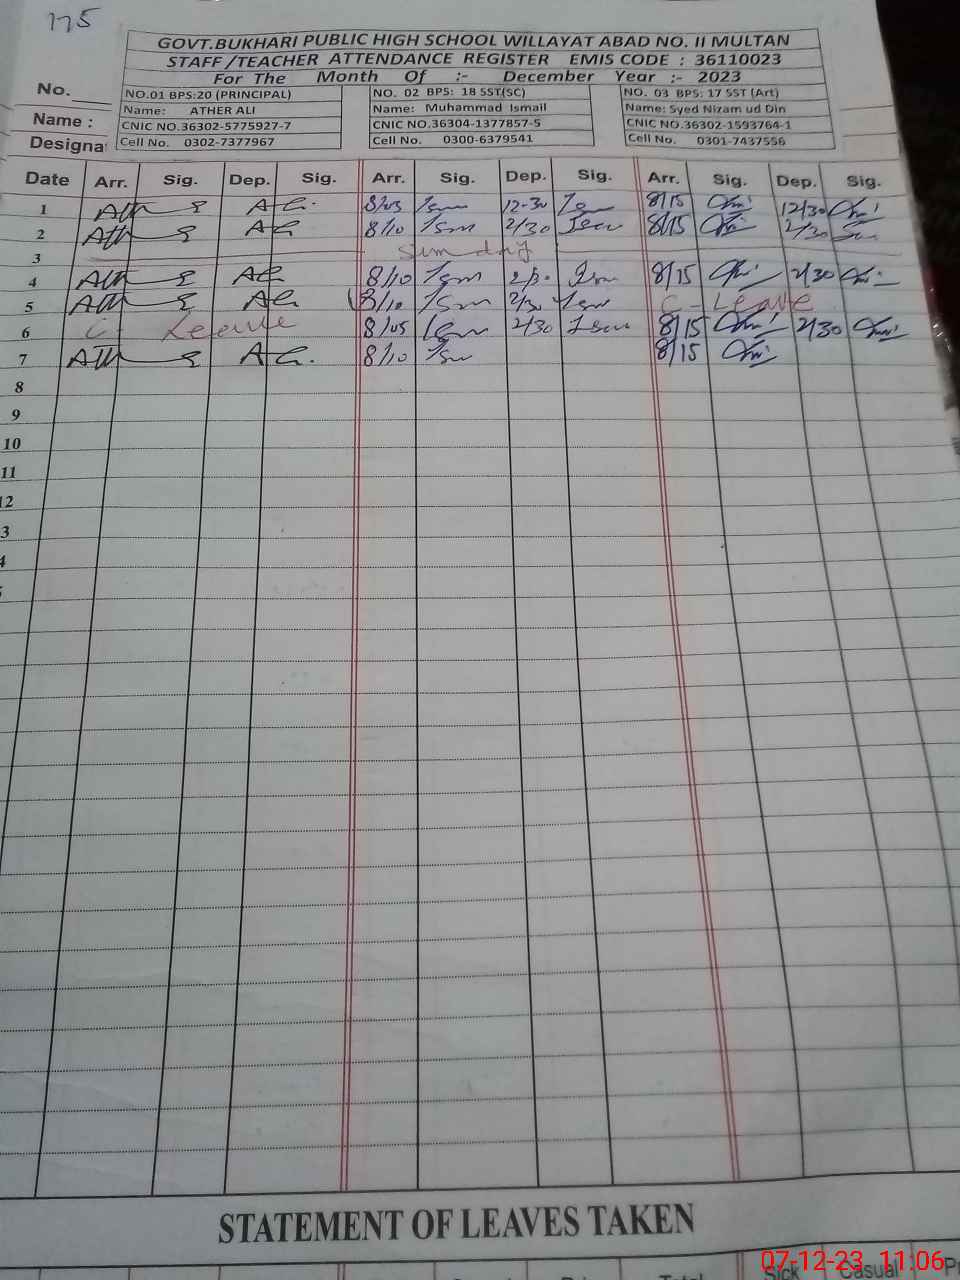 175
GOVT.BUKHARI PUBLIC HIGH SCHOOL WILLAYAT ABAD NO. II MULTAN
STAFF/TEACHER ATTENDANCE REGISTER EMIS CODE : 36110023
For The Month Of :- December Year :- 2023
No.
Name :
Designa
NO.01 BPS:20 (PRINCIPAL)
Name: ATHER ALI
CNIC NO.36302-5775927-7
Cell No. 0302-7377967
NO. 02 BPS: 18 SST(SC)
Name: Muhammad Ismail
CNIC NO.36304-1377857-5
Cell No. 0300-6379541
NO. 03 BPS: 17 SST (Art)
Name: Syed Nizam ud Din
CNIC NO.36302-1593764-1
Cell No. 0301-7437556
Date Arr. Sig. Dep. Sig. Arr. Sig. Dep. Sig. Arr. Sig. Dep. Sig.
1 8/05 12-30 8/15 12/30
2 8/10 2/30 8/15 2/30
3 Sunday
4 8/10 2/30 8/15 2/30
5 8/10 2/30 C-Leave
6 C- Leave 8/05 2/30 8/15 2/30
7 8/10 8/15
8
9
10
11
12
3
4
STATEMENT OF LEAVES TAKEN
Sick Casual
07-12-23 11:06